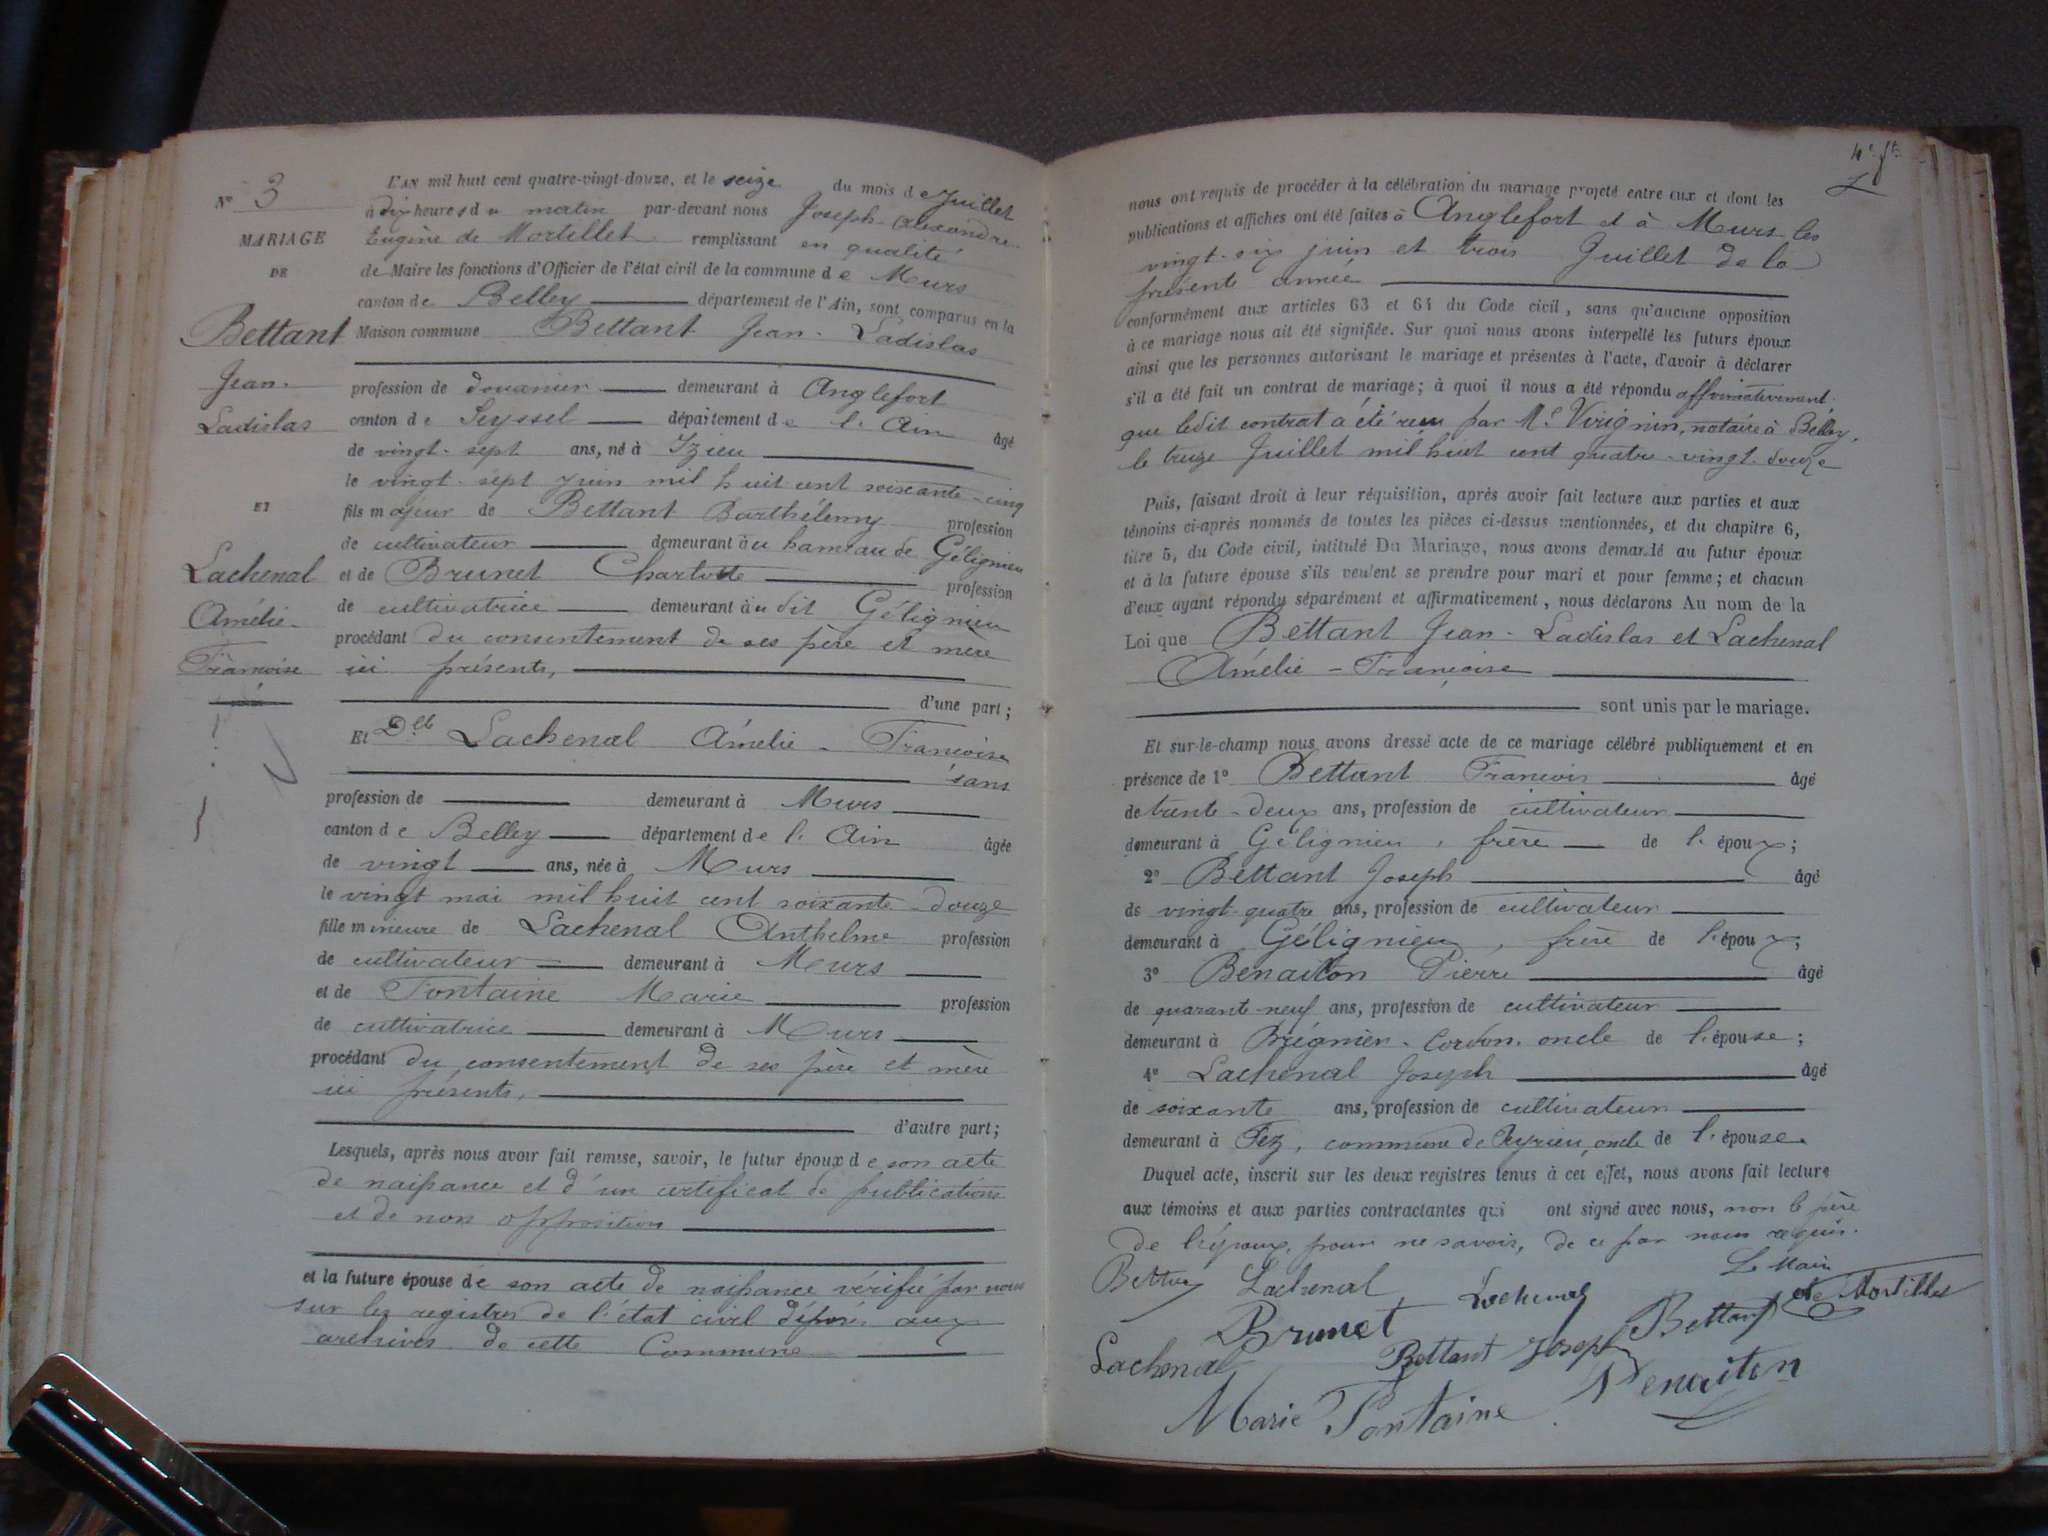 N° 3
MARIAGE
DE
Bettant
Jean-
Ladislas
ET
Lachenal
Amélie-
Françoise
L'AN mil huit cent quatre-vingt-douze, et le seize du mois de Juillet
à dix heures du matin par-devant nous Joseph-Alexandre-
Eugène de Mortillet remplissant en qualité
de Maire les fonctions d'Officier de l'état civil de la commune de Murs
canton de Belley département de l'Ain, sont comparus en la
Maison commune Bettant Jean-Ladislas
profession de douanier demeurant à Anglefort
canton de Seyssel département de l'Ain âgé
de vingt-sept ans, né à Izieu
le vingt-sept juin mil huit cent soixante-cinq
fils majeur de Bettant Barthélemy profession
de cultivateur demeurant au hameau de Gélignieu
et de Brunet Charlotte profession
de cultivatrice demeurant au dit Gélignieu
procédant du consentement de ses père et mère
ici présents,
d'une part;
Et Delle Lachenal Amélie-Françoise
sans
profession de demeurant à Murs
canton de Belley département de l'Ain âgée
de vingt ans, née à Murs
le vingt mai mil huit cent soixante-douze
fille mineure de Lachenal Anthelme profession
de cultivateur demeurant à Murs
et de Fontaine Marie profession
de cultivatrice demeurant à Murs
procédant du consentement de ses père et mère
ici présents,
d'autre part;
Lesquels, après nous avoir fait remise, savoir, le futur époux de son acte
de naissance et d'un certificat de publications
et de non opposition
et la future épouse de son acte de naissance vérifié par nous
sur les registres de l'état civil déposés aux
archives de cette Commune
nous ont requis de procéder à la célébration du mariage projeté entre eux et dont les
publications et affiches ont été faites à Anglefort et à Murs les
vingt-six juin et trois Juillet de la
présente année
conformément aux articles 63 et 64 du Code civil, sans qu'aucune opposition
à ce mariage nous ait été signifiée. Sur quoi nous avons interpellé les futurs époux
ainsi que les personnes autorisant le mariage et présentes à l'acte, d'avoir à déclarer
s'il a été fait un contrat de mariage; à quoi il nous a été répondu affirmativement
que ledit contrat a été reçu par Me Virignin, notaire à Belley,
le treize Juillet mil huit cent quatre-vingt-douze
Puis, faisant droit à leur réquisition, après avoir fait lecture aux parties et aux
témoins ci-après nommés de toutes les pièces ci-dessus mentionnées, et du chapitre 6,
titre 5, du Code civil, intitulé Du Mariage, nous avons demandé au futur époux
et à la future épouse s'ils veulent se prendre pour mari et pour femme; et chacun
d'eux ayant répondu séparément et affirmativement, nous déclarons Au nom de la
Loi que Bettant Jean-Ladislas et Lachenal
Amélie-Françoise
sont unis par le mariage.
Et sur-le-champ nous avons dressé acte de ce mariage célébré publiquement et en
présence de 1° Bettant François âgé
de trente-deux ans, profession de cultivateur
demeurant à Gélignieu, frère de l'époux;
2° Bettant Joseph âgé
de vingt-quatre ans, profession de cultivateur
demeurant à Gélignieu, frère de l'époux;
3° Benaiton Pierre âgé
de quarante-neuf ans, profession de cultivateur
demeurant à Brégnier-Cordon, oncle de l'épouse;
4° Lachenal Joseph âgé
de soixante ans, profession de cultivateur
demeurant à Fez, commune de Peyrieu, oncle de l'épouse.
Duquel acte, inscrit sur les deux registres tenus à cet effet, nous avons fait lecture
aux témoins et aux parties contractantes qui ont signé avec nous, non le père
de l'époux, pour ne savoir, de ce par nous requis.
Le Maire
Bettant Lachenal Lachenal de Mortillet
Brunet Bettant
Lachenal Bettant Joseph
Marie Fontaine Benaiton